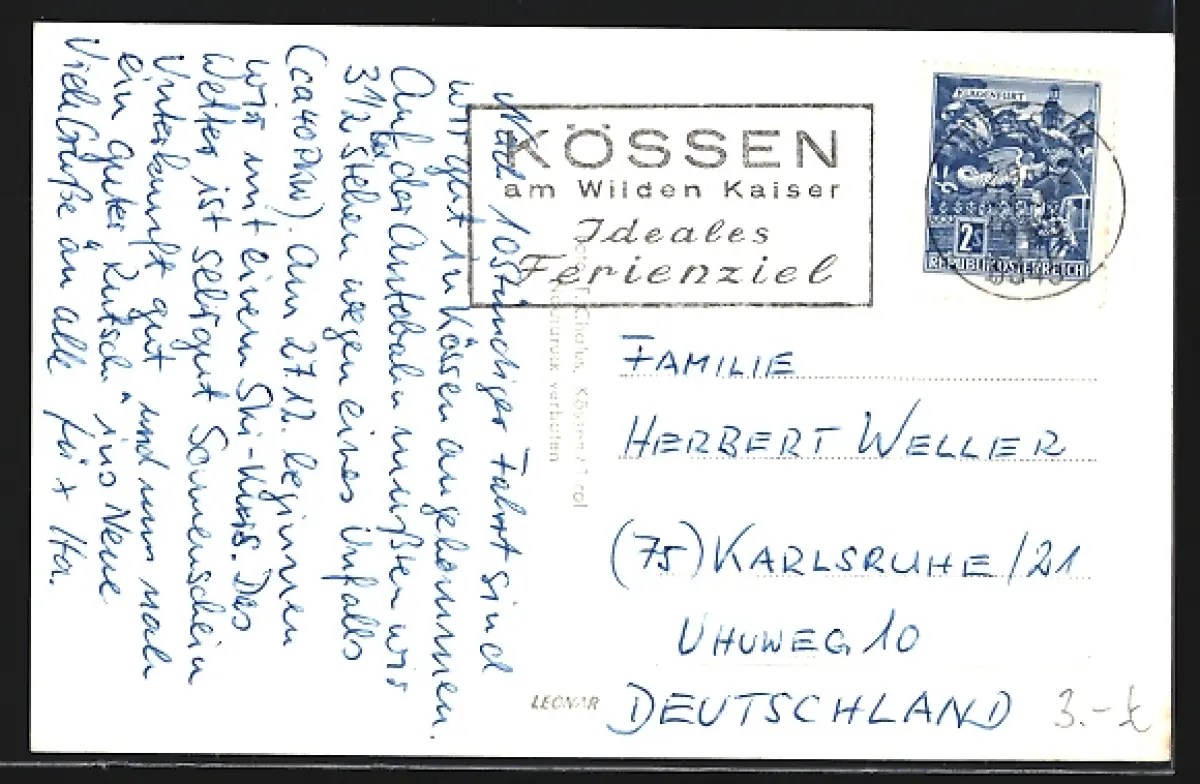 Nach 10stündiger Fahrt sind
wir gut in Kössen angekommen.
Auf der Autobahn mußten wir
3 1/2 stehen wegen eines Unfalls
(ca 40 PKW). Am 27.12. beginnen
wir mit einem Ski-Kurs. Das
Wetter ist sehr gut Sonnenschein
Unterkunft gut und nun noch
ein guter Rutsch ins Neue
Viele Grüße an alle
KÖSSEN
am Wilden Kaiser
Ideales
Ferienziel
KLAGENFURT
2S
REPUBLIK ÖSTERREICH
Kössen/Tirol
verboten
FAMILIE
HERBERT WELLER
(75) KARLSRUHE/21
UHUWEG 10
DEUTSCHLAND
LEONAR
3.-